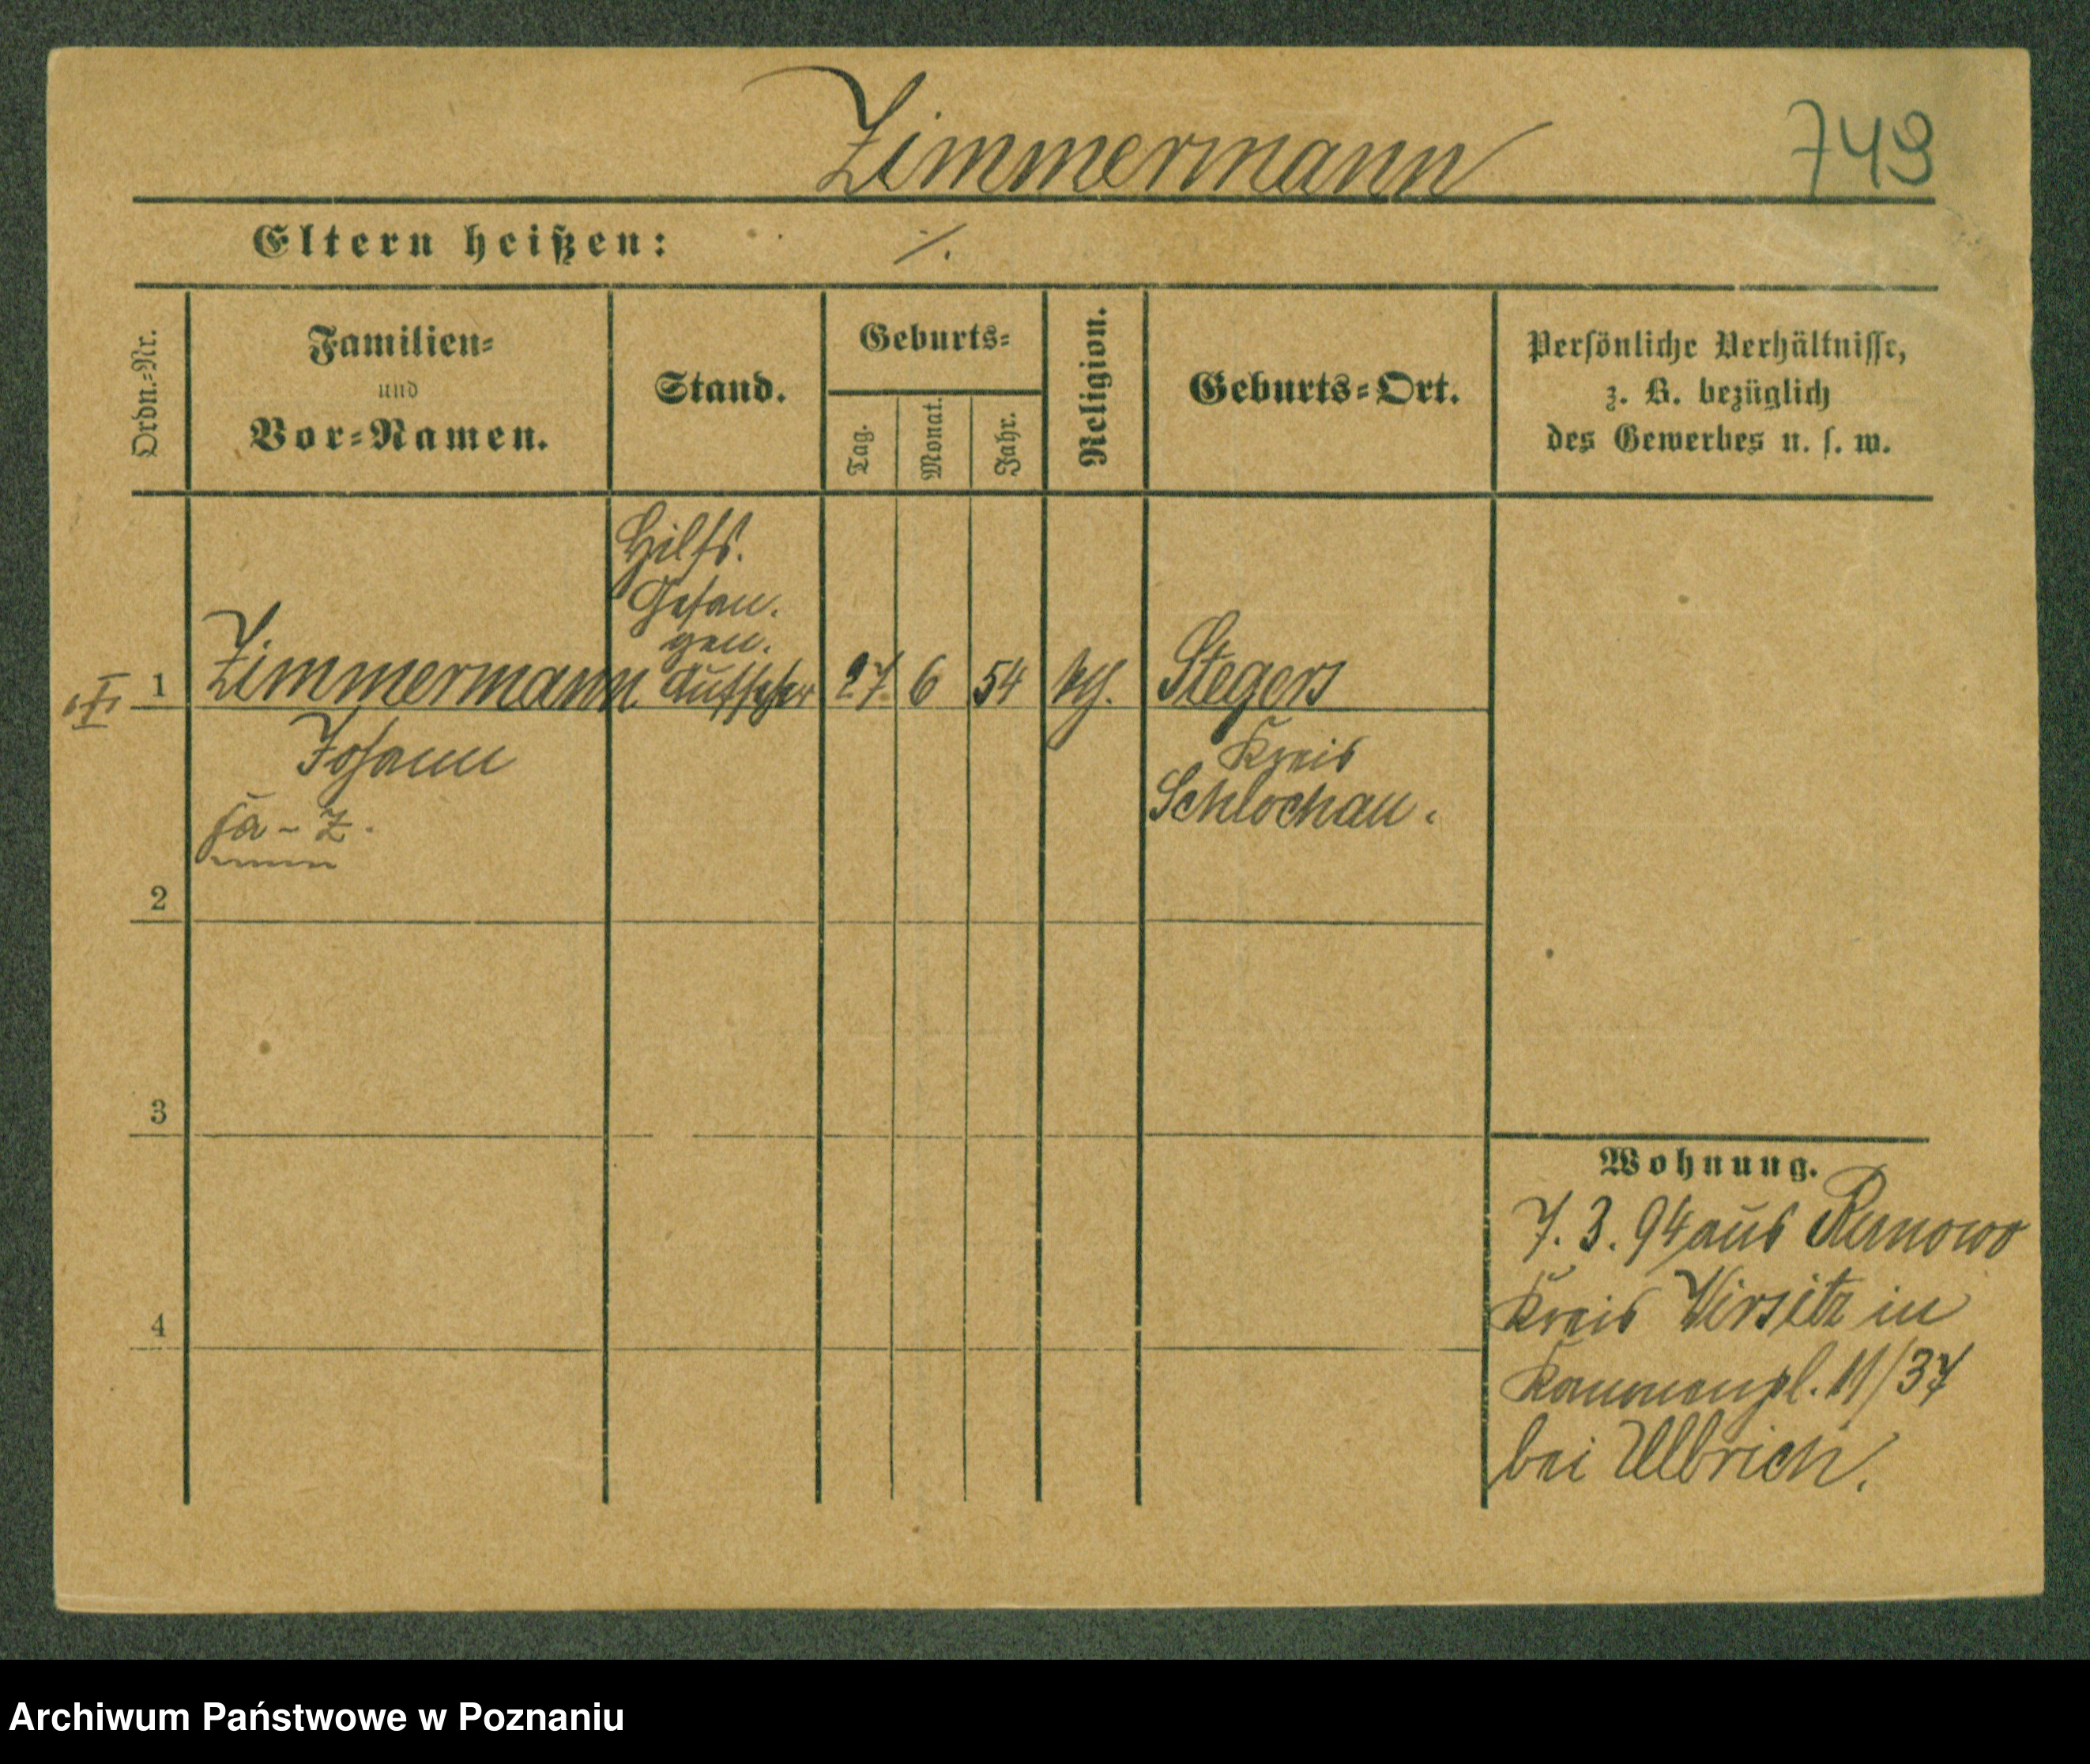 Zimmermann
749
Eltern heißen: ·/.
Ordn.-Nr.
Familien-
und
Vor-Namen.
Stand.
Geburts-
Tag.
Monat.
Jahr.
Religion.
Geburts-Ort.
Persönliche Verhältnisse,
z. B. bezüglich
des Gewerbes u. s. w.
Hilfs.
Gefan.
gen.
1 Zimmermann Aufseher 27. 6 54 kth. Stegers
Johann
Kreis
Schlochau.
2
3
4
Wohnung.
7. 3. 94 aus Runowo
Kreis Wirsitz in
Kanonenpl. 11/37
bei Ulbrich.
Archiwum Państwowe w Poznaniu